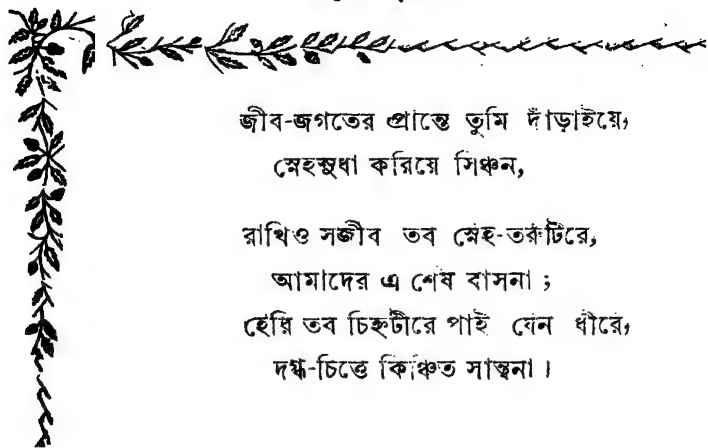 জীব-জগতের প্রান্তে তুমি দাঁড়াইয়ে,
স্নেহসুধা করিয়ে সিঞ্চন,
রাখিও সজীব তব স্নেহ-তরুটিরে,
আমাদের এ শেষ বাসনা ;
হেরি তব চিহ্নটীরে পাই যেন ধীরে,
দগ্ধ-চিত্তে কিঞ্চিত সান্ত্বনা ।